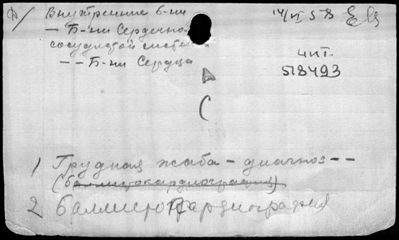 Внутренние б-ни
14/VI 58
— Б-ни Сердечно
сосудистой систем
чит.
518493
— — Б-ни Сердца
1 Грудная жаба — диагноз — —
(баллистокардиография)
2 Баллистокардиография